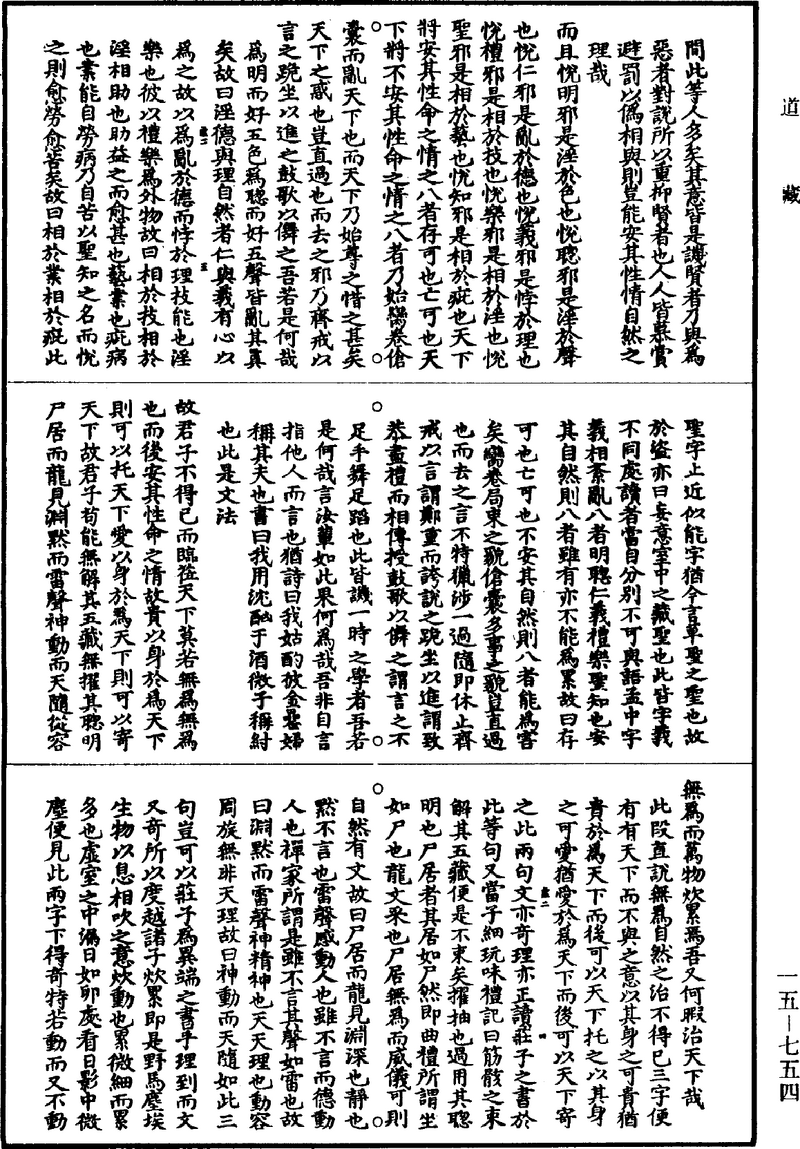 道藏
間此等人多矣其意皆是譏賢者乃與為
惡者對說所以重抑賢者也人人皆慕賞
避罰以偽相與則豈能安其性情自然之
理哉
而且悅明邪是淫於色也悅聰邪是淫於聲
也悅仁邪是亂於德也悅義邪是悖於理也
悅禮邪是相於技也悅樂邪是相於淫也悅
聖邪是相於藝也悅知邪是相於疵也天下
將安其性命之情之八者存可也亡可也天
下將不安其性命之情之八者乃始臠卷傖
囊而亂天下也而天下乃始尊之惜之甚矣
天下之惑也豈直過也而去之邪乃齊戒以
言之跪坐以進之鼓歌以儛之吾若是何哉
為明而好五色為聰而好五聲皆亂其真
矣故曰淫德與理自然者仁與義有心以
為之故以為亂於德而悖於理技能也淫
樂也彼以禮樂為外物故曰相於技相於
淫相助也助益之而愈甚也藝業也疵病
也業能自勞病乃自苦以聖知之名而悅
之則愈勞愈苦矣故曰相於業相於疵此
聖字止近似能字猶今言草聖之聖也故
於盜亦曰妄意室中之藏聖也此皆字義
不同處讀者當自分別不可與語孟中字
義相紊亂八者明聰仁義禮樂聖知也安
其自然則八者雖有亦不能為累故曰存
可也亡可也不安其自然則八者能為害
矣臠卷局束之貌傖囊多事之貌豈直過
也而去之言不特獵涉一過隨即休止齊
戒以言謂鄭重而誇說之跪坐以進謂致
恭盡禮而相傳授鼓歌以儛之謂言之不
足手舞足蹈也此皆譏一時之學者吾若
是何哉言汝輩如此果何為哉吾非自言
指他人而言也猶詩曰我姑酌彼金罍婦
稱其夫也書曰我用沈酗于酒微子稱紂
也此是文法
故君子不得已而臨蒞天下莫若無為無為
也而後安其性命之情故貴以身於為天下
則可以托天下愛以身於為天下則可以寄
天下故君子苟能無解其五藏無擢其聰明
尸居而龍見淵默而雷聲神動而天隨從容
無為而萬物炊累焉吾又何暇治天下哉
此段直說無為自然之治不得已三字便
有有天下而不與之意以其身之可貴猶
貴於為天下而後可以天下托之以其身
之可愛猶愛於為天下而後可以天下寄
之此兩句文亦奇理亦正讀莊子之書於
此等句又當子細玩味禮記曰筋骸之束
解其五藏便是不束矣擢抽也過用其聰
明也尸居者其居如尸然即曲禮所謂坐
如尸也龍文采也尸居無為而威儀可則
自然有文故曰尸居而龍見淵深也靜也
默不言也雷聲感動人也雖不言而德動
人也禪家所謂是雖不言其聲如雷也故
曰淵默而雷聲神精神也天天理也動容
周旋無非天理故曰神動而天隨如此三
句豈可以莊子為異端之書乎理到而文
又奇所以度越諸子炊累即是野馬塵埃
生物以息相吹之意炊動也累微細而累
多也虛室之中漏日如卵處看日影中微
塵便見此兩字下得奇特若動而又不動
一五—七五四